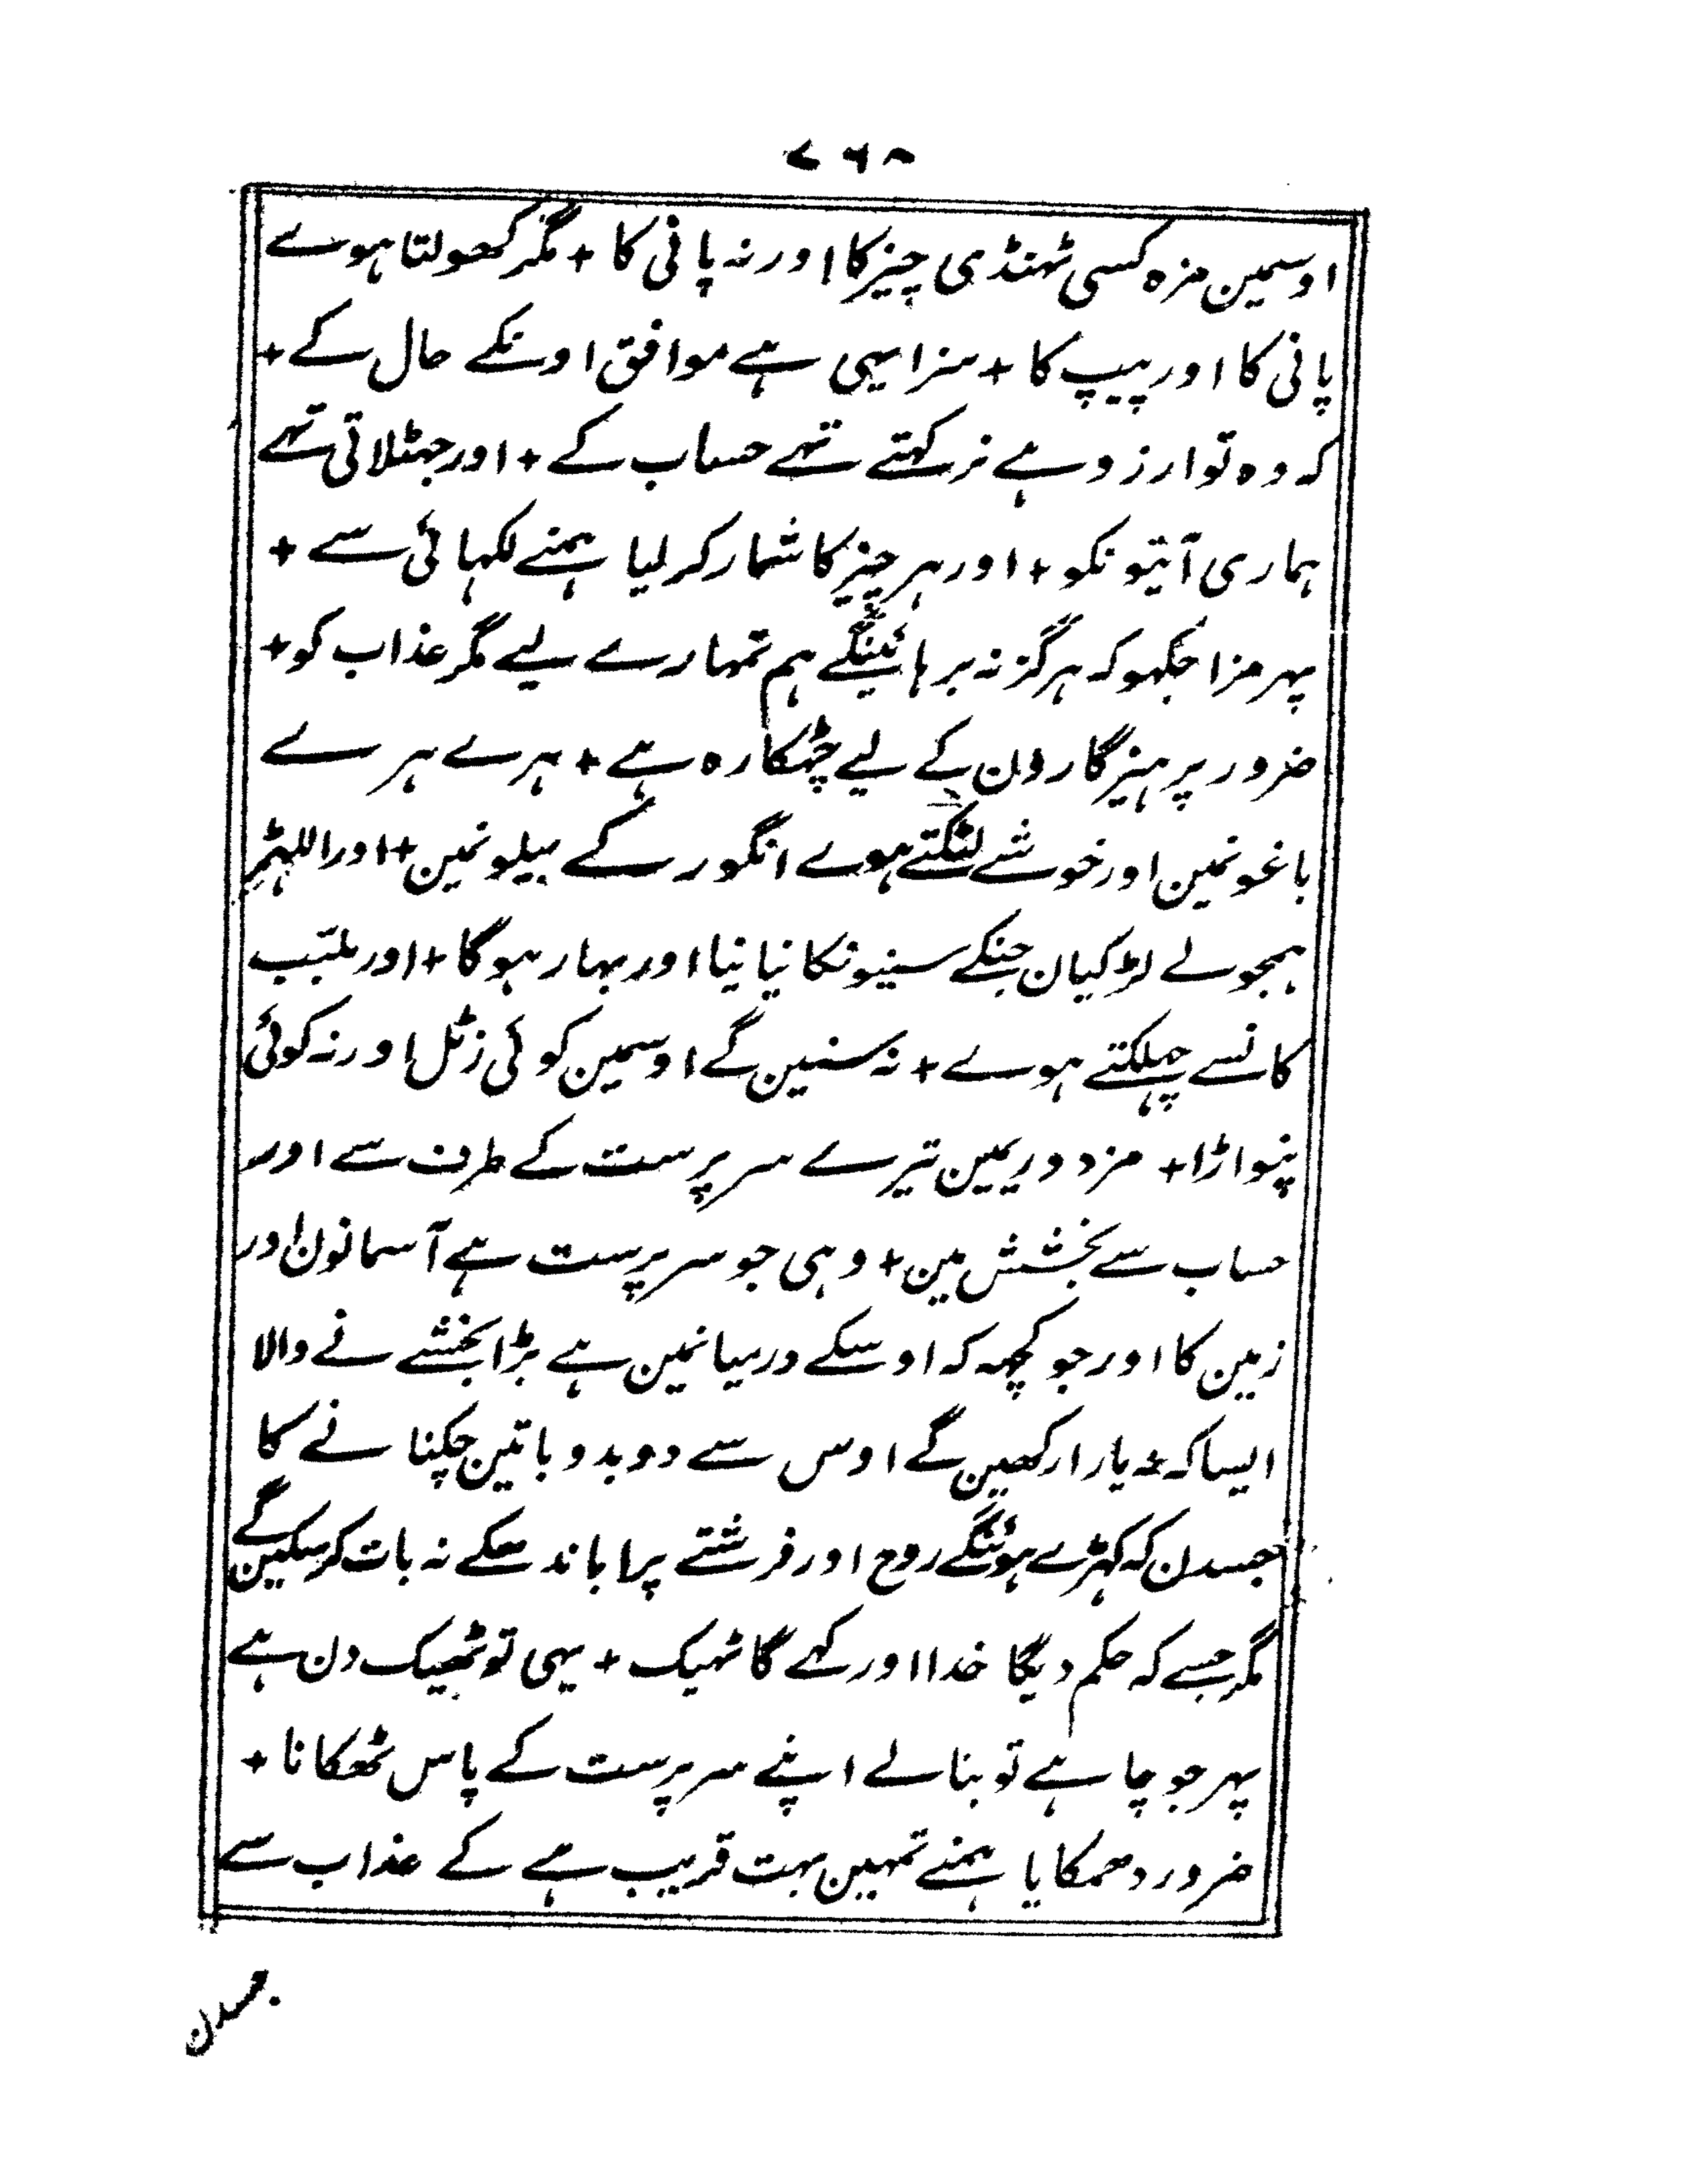 ۷۶۸
اوسمین مزہ کسی ٹھنڈی چیز کا اور نہ پانی کا + مگر کھولتا ہوے
پانی کا اور پیپ کا + سزا یہی ہے موافق اونکے حال کے +
کہ وہ تو ارزو ہے نرکہتے تہے حساب کے + اور جہٹلاتی تہے
ہماری آیتونکو + اور ہر چیز کا شمار کر لیا ہمنے لکہائی سے +
پہر مزا چکہو کہ ہرگز نہ برہائینگے ہم تمہارے لیے مگر عذاب کو +
ضرور پرہیزگارون کے لیے چٹہکارہ ہے + ہرے ہرے
باغونمین اور خوشے لٹکتے ہوے انگور کے بیلونمین + اور اللہٹر
ہمجولے لڑکیان جنکے سینونکا نیا نیا اور بہار ہوگا + اور ملبّب
کانسے چہلکتے ہوے + نہ سنین گے اوسمین کوئی زٹل اور نہ کوئی
پنواڑا + مزدوریمین تیرے سرپرست کے طرف سے اور
حساب سے بخشش مین + وہی جو سرپرست ہے آسمانون اور
زمین کا اور جو کچہہ کہ اوسکے درمیانمین ہے بڑا بخشے نے والا
ایسا کہ نہ یارا رکھین گے اوس سے دوبدو باتین چکنانے کا
جسدن کہ کہڑے ہوئنگے روح اور فرشتے پرا باندھکے نہ بات کر سکین گے
مگر جسے کہ حکم دیگا خدا اور کہے گا ٹہیک + یہی تو ٹھیک دن ہے
پہر جو چاہے تو بنالے اپنے سرپرست کے پاس ٹھکانا +
ضرور دھمکایا ہمنے تمہین بہت قریب ہے کے عذاب سے
جسدن